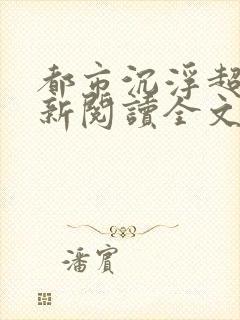 都市沉浮超
新閱讀全文
潘賓